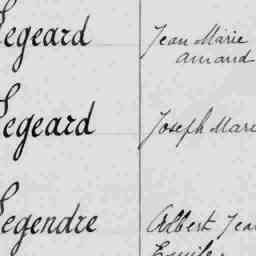 Legeard Jean Marie
Amand
Legeard Joseph Marie
Legendre Albert Jean
Emile